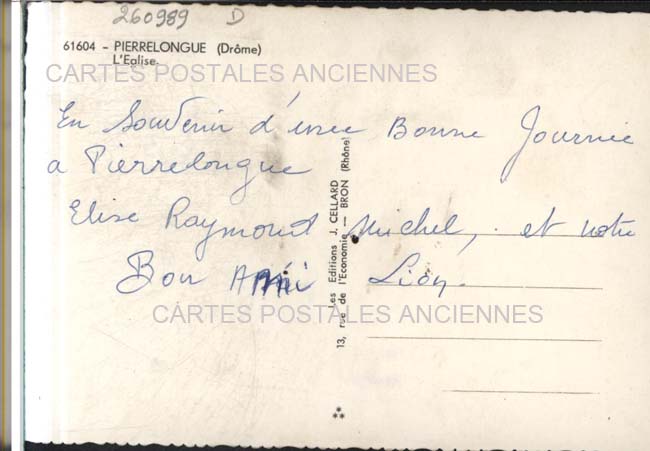 260989 D
61604 - PIERRELONGUE (Drôme)
L'Eglise.
CARTES POSTALES ANCIENNES
En Souvenir d'une Bonne Journée
a Pierrelongue
Elise Raymond Michel, et notre
Bon Ami Lion.
CARTES POSTALES ANCIENNES
Les Editions J. CELLARD
13, rue de l'Economie — BRON (Rhône)